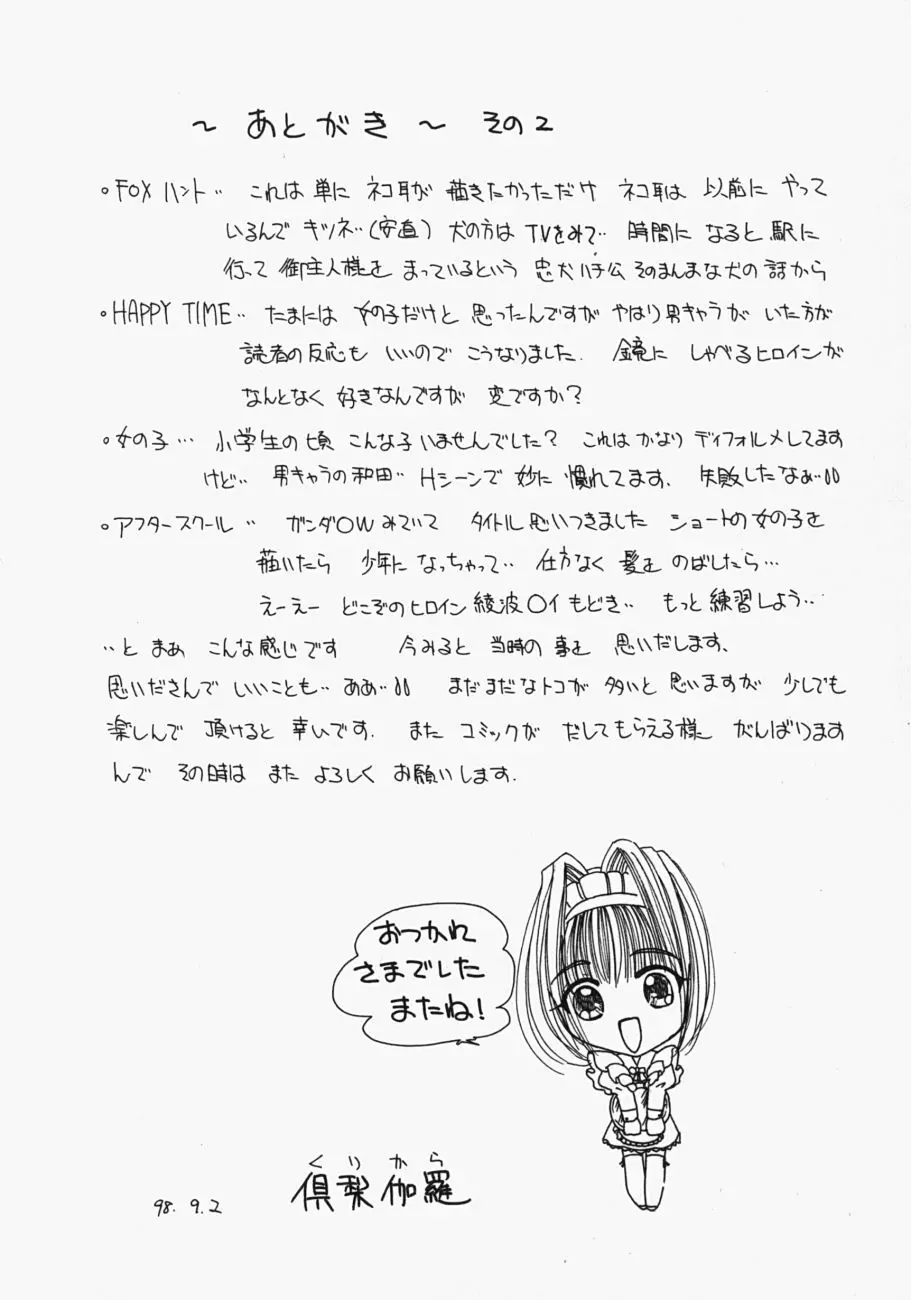 ～ あとがき ～ その2
◦FOXハント‥ これは単に ネコ耳が 描きたかっただけ ネコ耳は 以前に やって
いるんで キツネ‥(安直) 犬の方は TVをみて‥ 時間に なると 駅に
行って 御主人様を まっているという 忠犬ハチ公 そのまんまな犬の話から
◦HAPPY TIME‥ たまには 女の子だけと 思ったんですが やはり男キャラが いた方が
読者の反応も いいので こうなりました. 鏡に しゃべるヒロインが
なんとなく 好きなんですが 変ですか?
◦女の子… 小学生の頃 こんな子いませんでした? これは かなり ディフォルメしてます
けど‥ 男キャラの和田‥ Hシーンで 妙に 慣れてます. 失敗したなぁ‥
◦アフタースクール ‥ ガンダ〇W みていて タイトル思いつきました ショートの女の子を
描いたら 少年に なっちゃって‥ 仕方なく 髪を のばしたら…
えーえー どこぞのヒロイン 綾波〇イもどき‥ もっと練習しよう‥
‥と まぁ こんな感じです 今みると 当時の 事を 思いだします.
思いださんで いいことも‥ ああ‥ まだまだなトコが 多いと 思いますが 少しでも
楽しんで 頂けると 幸いです. また コミックが だしてもらえる様 がんばります
んで その時は また よろしく お願いします.
おつかれ
さまでした
またね!
くりから
倶梨伽羅
98. 9. 2